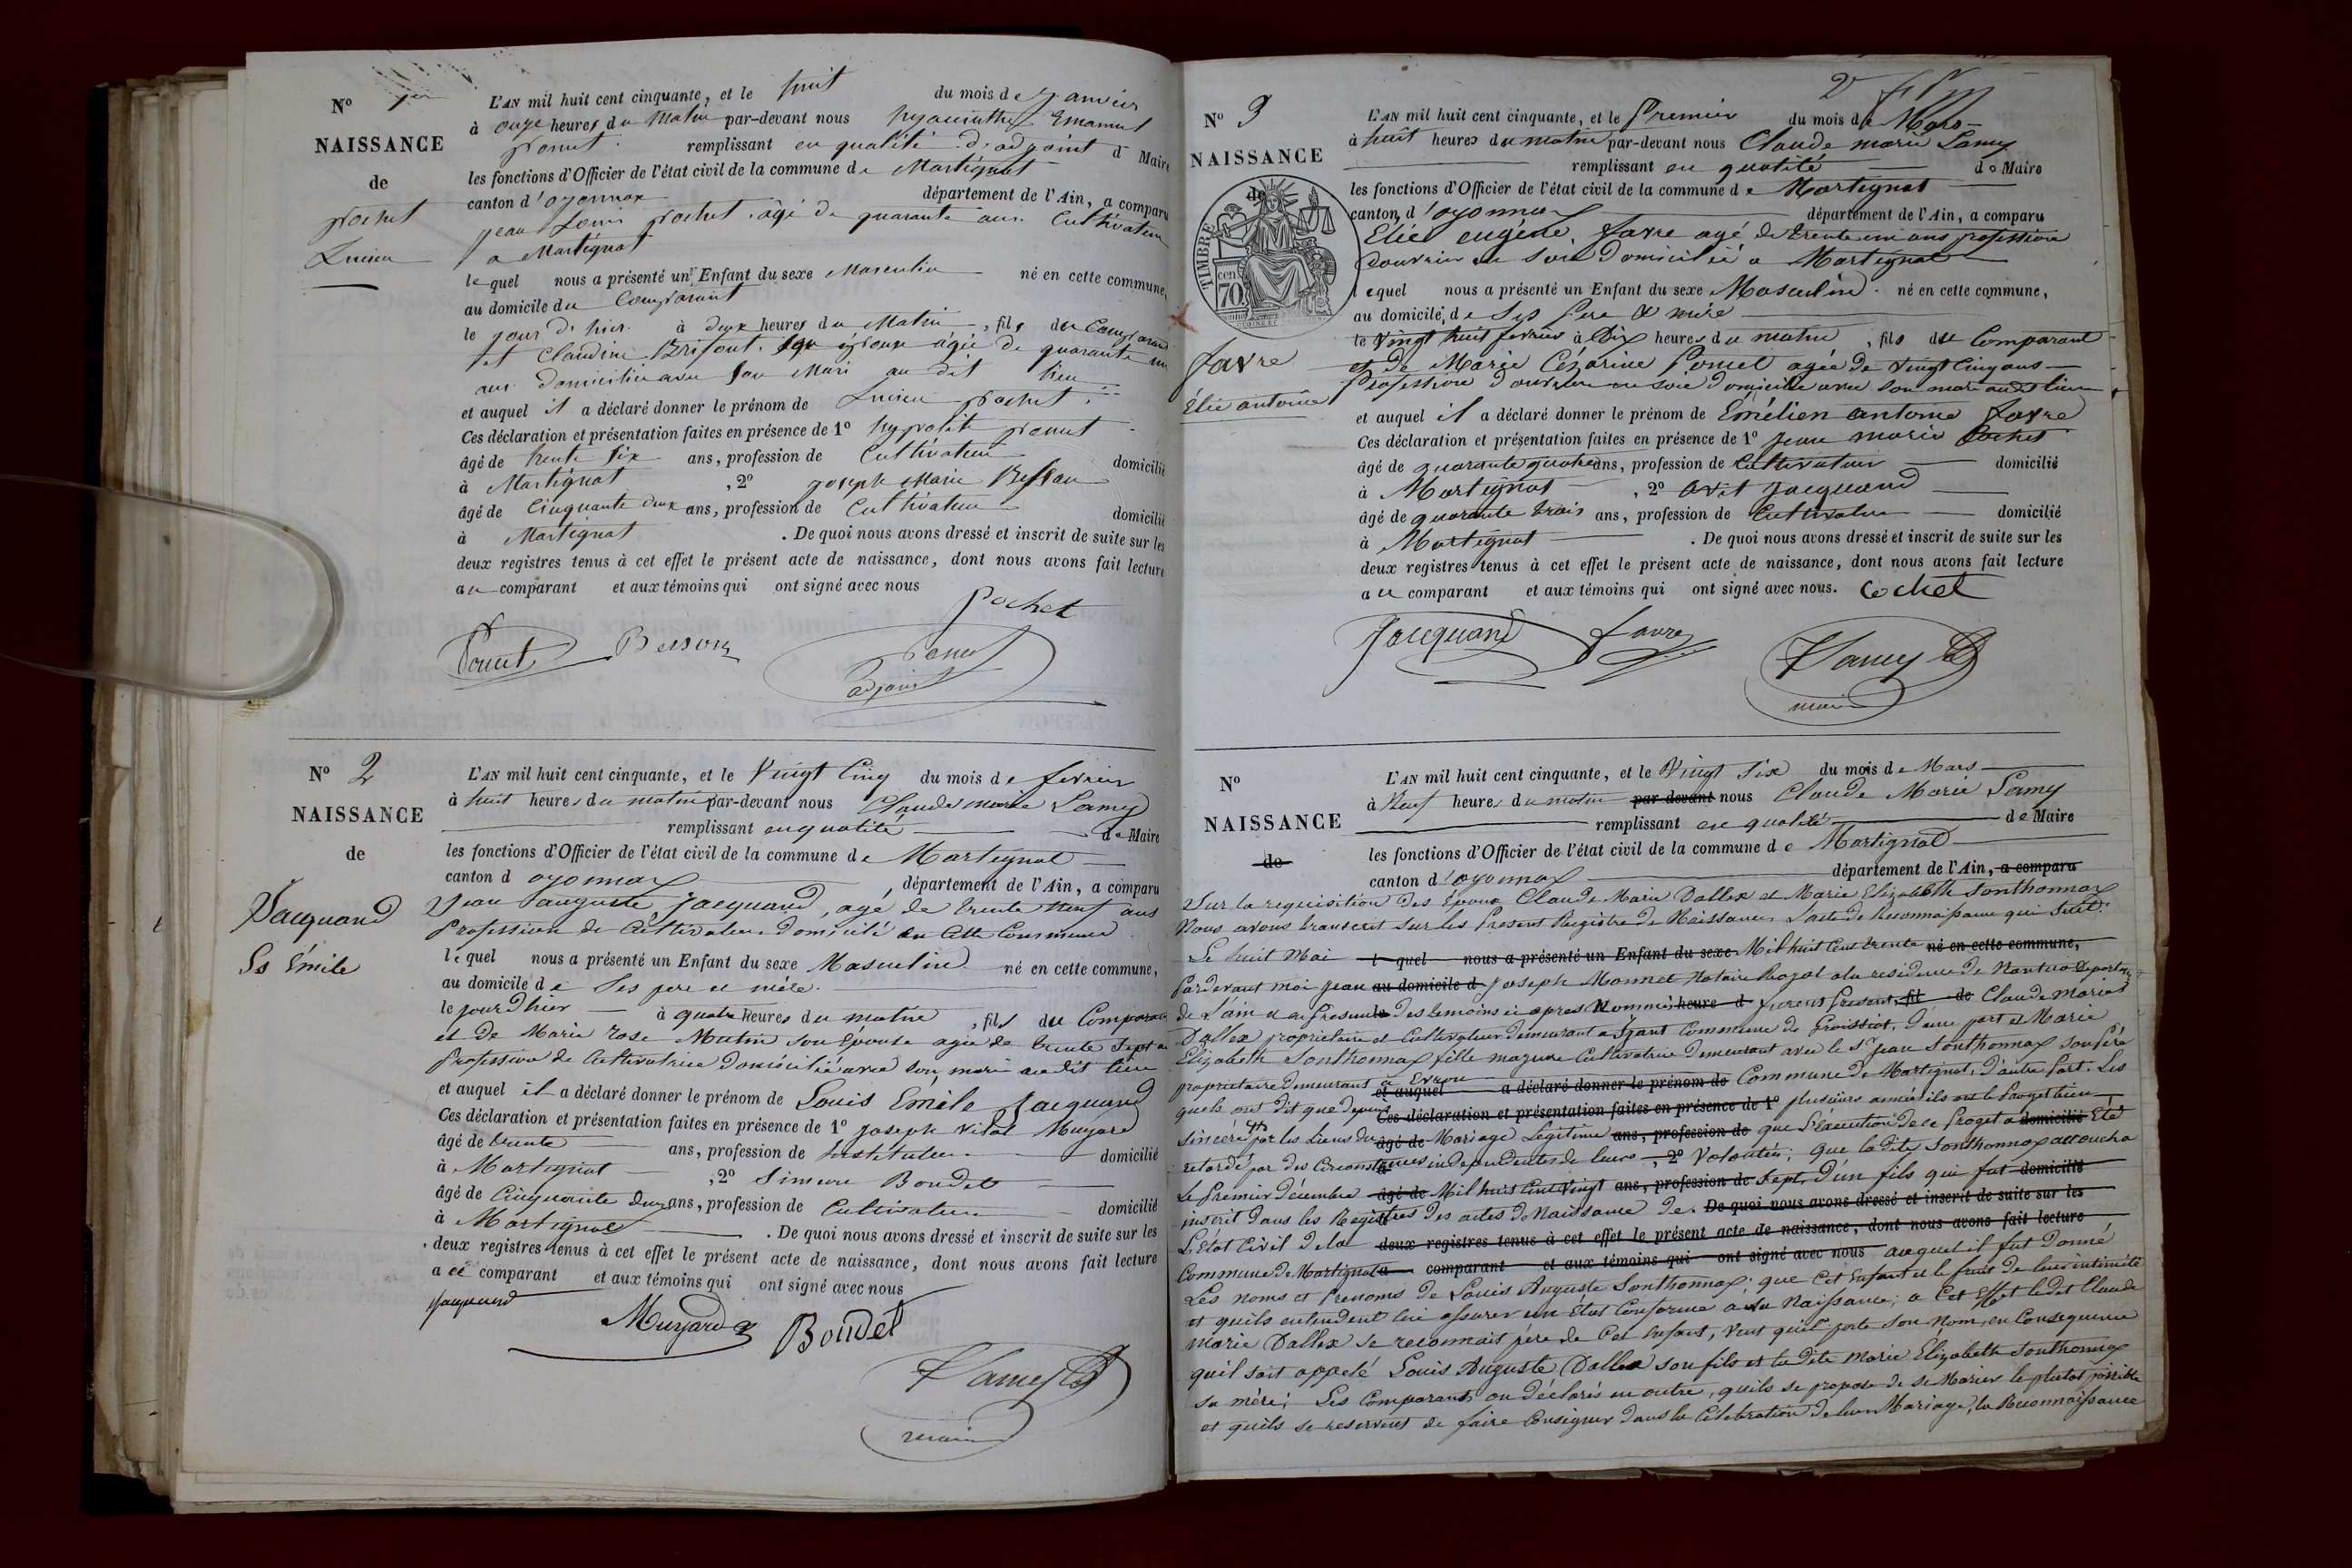 No 1er
NAISSANCE
de
pochet
Lucien
L'AN mil huit cent cinquante, et le huit du mois de janvier
à onze heures du Matin par-devant nous hyacinthe Emanuel
ponut remplissant en qualité d'adjoint d Maire
les fonctions d'Officier de l'état civil de la commune de Martignat
canton d'oyonnax département de l'Ain, a comparu
jean Louis pochet âgé de quarante ans Cultivateur
a Martignat
lequel nous a présenté un Enfant du sexe Masculin né en cette commune,
au domicile du Comparant
le jour d'hier à deux heures du Matin, fils du Comparant
et Claudine Brifout son épouse agée de quarante un
ans domiciliée avec son Mari au dit lieu
et auquel il a déclaré donner le prénom de Lucien pochet
Ces déclaration et présentation faites en présence de 1o hypolite ponut
âgé de trente six ans, profession de Cultivateur domicilié
à Martignat, 2o joseph Marie Besson
âgé de Cinquante deux ans, profession de Cultivateur domicilié
à Martignat. De quoi nous avons dressé et inscrit de suite sur les
deux registres tenus à cet effet le présent acte de naissance, dont nous avons fait lecture
au comparant et aux témoins qui ont signé avec nous
Pochet
Ponut Besson ponut
adjoint
No 2
NAISSANCE
de
Jacquand
Ls Émile
L'AN mil huit cent cinquante, et le Vingt Cinq du mois de fevrier
à huit heures du matin par-devant nous Claude marie Lamy
remplissant en qualité de Maire
les fonctions d'Officier de l'état civil de la commune de Martignat
canton d oyonnax, département de l'Ain, a comparu
Jean auguste Jacquand, agé de trente neuf ans
Profession de Cultivateur domicilié en Cette Commune
lequel nous a présenté un Enfant du sexe Masculin né en cette commune,
au domicile de Ses pere et mère
le jour d'hier à quatre heures du matin, fils du Comparant
et de Marie rose Mutin son épouse agée de trente Sept a
Profession de Cultivatrice domiciliée avec son mari audit lieu
et auquel il a déclaré donner le prénom de Louis Emile Jacquand
Ces déclaration et présentation faites en présence de 1o Joseph Vital Muyard
âgé de trente ans, profession de Instituteur domicilié
à Martignat, 2o Simeon Boudet
âgé de Cinquante deux ans, profession de Cultivateur domicilié
à Martignat. De quoi nous avons dressé et inscrit de suite sur les
deux registres tenus à cet effet le présent acte de naissance, dont nous avons fait lecture
au comparant et aux témoins qui ont signé avec nous
Jacquand Muyard Boudet
Lamy
maire
2
No 3
NAISSANCE
de
TIMBRE
70 cen
favre
Élie antoine
L'AN mil huit cent cinquante, et le Premier du mois de Mars
à huit heures du matin par-devant nous Claude marie Lamy
remplissant en qualité de Maire
les fonctions d'Officier de l'état civil de la commune de Martignat
canton d'oyonnax département de l'Ain, a comparu
Elie eugène favre agé de trente un ans profession
d'ouvrier en soie domicilié a Martignat
lequel nous a présenté un Enfant du sexe Masculin né en cette commune,
au domicile de Ses Pere & mère
le Vingt huit fevrier à Dix heures du matin, fils du Comparant
et de Marie Cézarine Poncet agée de Vingt Cinq ans
Profession d'ouvriere en soie domiciliée avec son mari audit lieu
et auquel il a déclaré donner le prénom de Emélien antoine favre
Ces déclaration et présentation faites en présence de 1o Jean marie Cochet
âgé de quarante quatre ans, profession de Cultivateur domicilié
à Martignat, 2o Avit Jacquand
âgé de quarante trois ans, profession de Cultivateur domicilié
à Martignat. De quoi nous avons dressé et inscrit de suite sur les
deux registres tenus à cet effet le présent acte de naissance, dont nous avons fait lecture
au comparant et aux témoins qui ont signé avec nous. Cochet
Jacquand favre
Lamy
maire
No
NAISSANCE
de
L'AN mil huit cent cinquante, et le Vingt Six du mois de Mars
à Neuf heures du matin par-devant nous Claude Marie Lamy
remplissant en qualité de Maire
les fonctions d'Officier de l'état civil de la commune de Martignat
canton d'oyonnax département de l'Ain, a comparu
Sur la requisition des époux Claude Marie Dallex et Marie Elizabeth Sonthonnax
Nous avons transcrit sur les Present Registre de Naissance L'acte de Reconnaissance qui Suit:
Le huit Mai l quel nous a présenté un Enfant du sexe Mil huit Cent trente né en cette commune,
Pardevant moi Jean au domicile d Joseph Monnet Notaire Royal a la residence de Nantua Departemt
de L'ain et en Presence des temoins ci apres Nommés heure d furent Presents fil de Claude Marie
Dallex proprietaire et Cultivateur demeurant a Izant Commune de Groissiat, d'une part et Marie
Elizabeth Sonthonnax fille majeure Cultivatrice demeurant avec le Sr Jean Sonthonnax son Père
proprietaire demeurant a Evron et auquel a déclaré donner le prénom de Commune de Martignat, d'autre Part. Les
quels ont dit que depuis Ces déclaration et présentation faites en présence de 1o plusieurs années ils ont le Projet bien
sincère par les Liens du âgé de Mariage Légitime ans, profession de que L'éxécution de ce Projet a domicilié Eté
retardé par des Circonstances independentes de leurs, 2o Volontés; Que la dite Sonthonnax accoucha
Le Premier Décembre âgé de Mil huit Cent Vingt ans, profession de Sept, D'un fils qui fut domicilié
inscrit dans les Registres des actes de Naissance de. De quoi nous avons dressé et inscrit de suite sur les
L'Etat Civil de la deux registres tenus à cet effet le présent acte de naissance, dont nous avons fait lecture
Commune de Martignat a comparant et aux témoins qui ont signé avec nous auquel il fut Donné
Les noms et Prenoms de Louis Auguste Sonthonnax; que Cet Enfant est le fruit de leur intimité
et quils entendent lui assurer un État Conforme a sa Naissance; a Cet Effet ledit Claude
Marie Dallex se reconnait père de Cet Enfant, veut qu'il porte son Nom, en Consequence
qu'il soit appelé Louis Auguste Dallex son fils et la dite Marie Élizabeth Sonthonnax
sa mère; Les Comparants on déclarés en outre, quils se propose de se Marier le plutot possible
et qu'ils se reservent de faire Consigner dans la Célébration de leur Mariage, la Reconnaissance